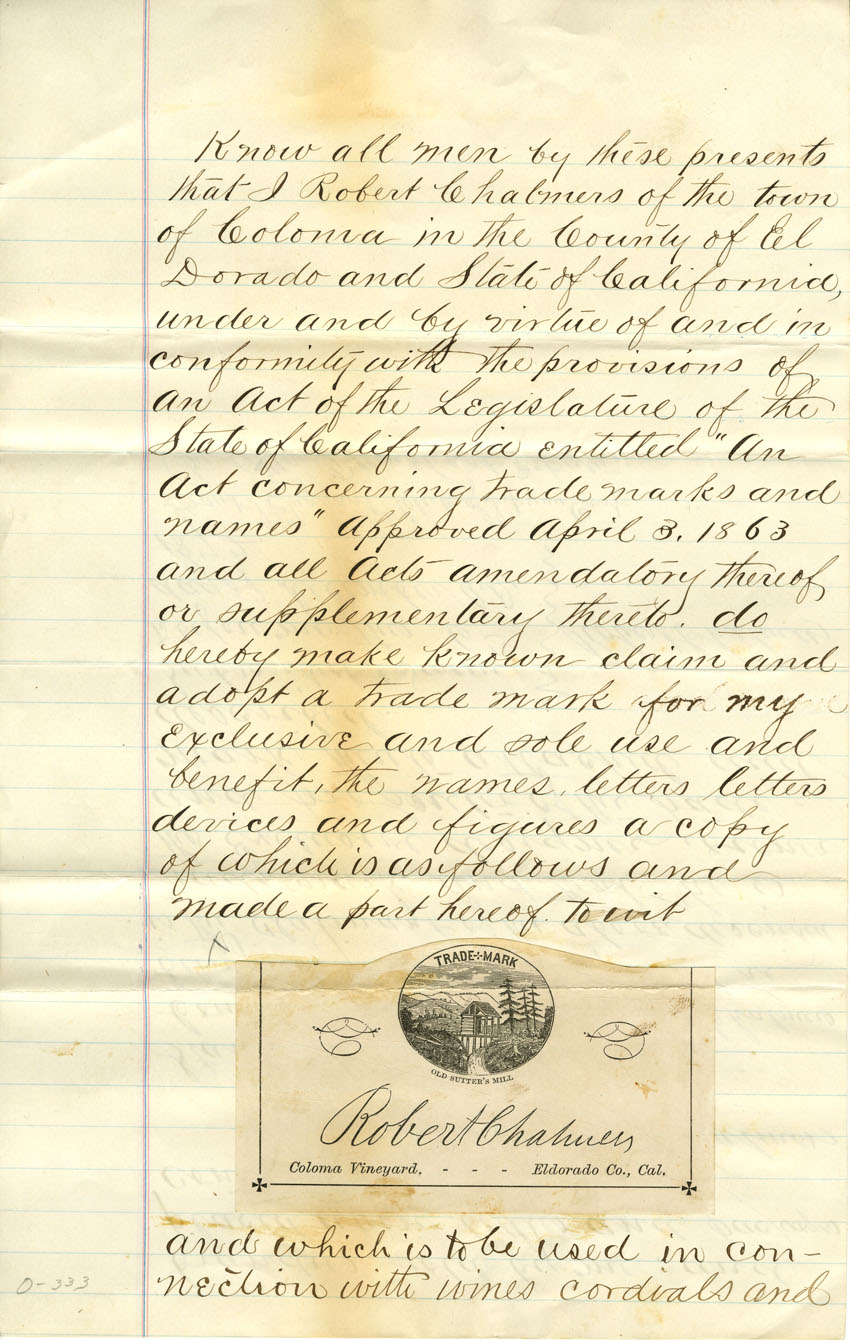 Know all men by these presents
that I Robert Chalmers of the town
of Coloma in the County of El
Dorado and State of California,
under and by virtue of and in
conformity with the provisions of
an Act of the Legislature of the
State of California entitled "An
Act concerning trade marks and
names" Approved April 3. 1863
and all Acts amendatory thereof
or supplementary thereto. do
hereby make known claim and
adopt a trade mark for my
exclusive and sole use and
benefit, the names, letters letters
devices and figures a copy
of which is as follows and
made a part hereof. to wit
X
TRADE MARK
OLD SUTTER'S MILL
Robert Chalmers
Coloma Vineyard. - - - Eldorado Co., Cal.
and which is to be used in con-
nection with wines cordials and
0-333